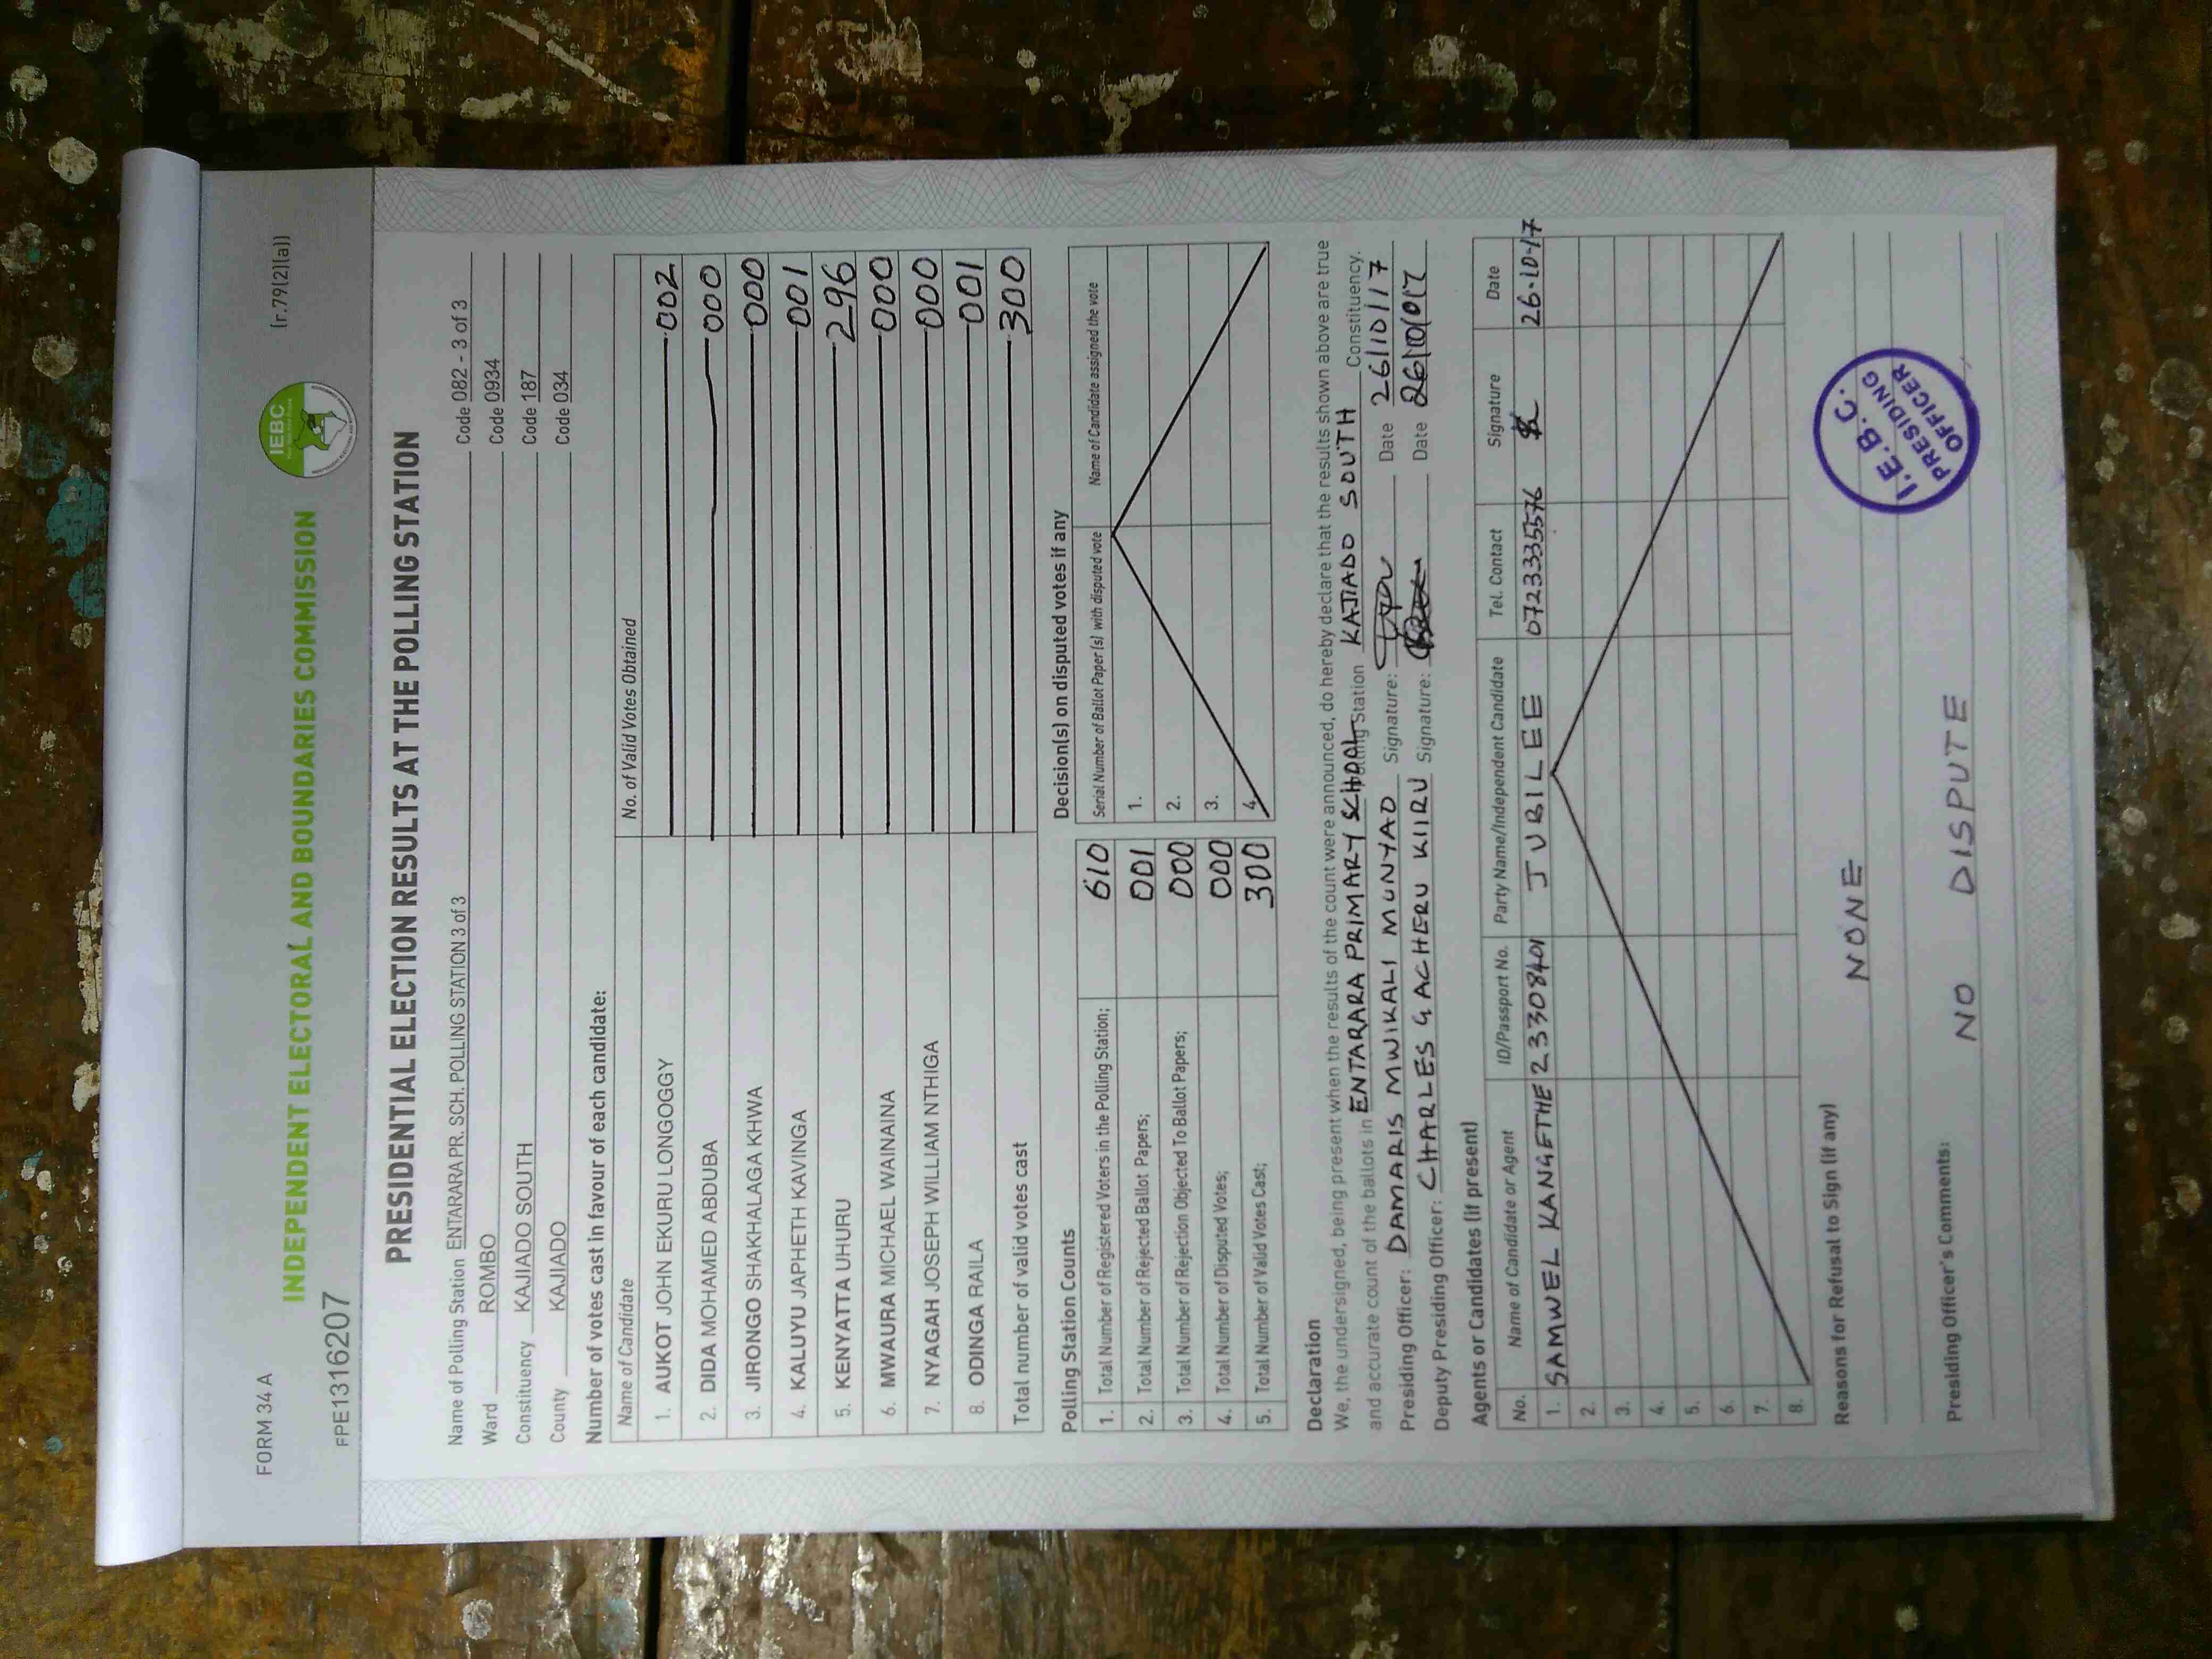 FORM 34 A
(r.79(2)(a))
INDEPENDENT ELECTORAL AND BOUNDARIES COMMISSION
IEBC
FPE1316207
PRESIDENTIAL ELECTION RESULTS AT THE POLLING STATION
Name of Polling Station ENTARARA PR. SCH. POLLING STATION 3 of 3 Code 082 - 3 of 3
Ward ROMBO Code 0934
Constituency KAJIADO SOUTH Code 187
County KAJIADO Code 034
Number of votes cast in favour of each candidate:
Name of Candidate No. of Valid Votes Obtained
1. AUKOT JOHN EKURU LONGOGGY 002
2. DIDA MOHAMED ABDUBA 000
3. JIRONGO SHAKHALAGA KHWA 000
4. KALUYU JAPHETH KAVINGA 001
5. KENYATTA UHURU 296
6. MWAURA MICHAEL WAINAINA 000
7. NYAGAH JOSEPH WILLIAM NTHIGA 000
8. ODINGA RAILA 001
Total number of valid votes cast 300
Polling Station Counts
1. Total Number of Registered Voters in the Polling Station; 610
2. Total Number of Rejected Ballot Papers; 001
3. Total Number of Rejection Objected To Ballot Papers; 000
4. Total Number of Disputed Votes; 000
5. Total Number of Valid Votes Cast; 300
Decision(s) on disputed votes if any
Serial Number of Ballot Paper(s) with disputed vote Name of Candidate assigned the vote
1.
2.
3.
4.
Declaration
We, the undersigned, being present when the results of the count were announced, do hereby declare that the results shown above are true
and accurate count of the ballots in ENTARARA PRIMARY SCHOOL Polling Station KAJIADO SOUTH Constituency.
Presiding Officer: DAMARIS MWIKALI MUNYAO Signature: Date 26/10/17
Deputy Presiding Officer: CHARLES GACHERU KIIRU Signature: Date
Agents or Candidates (if present)
No. Name of Candidate or Agent ID/Passport No. Party Name/Independent Candidate Tel. Contact Signature Date
1. SAMWEL KANGETHE 23308401 JUBILEE 0723335576 26-10-17
2.
3.
4.
5.
6.
7.
8.
Reasons for Refusal to Sign (if any)
NONE
Presiding Officer's Comments:
NO DISPUTE
I.E.B.C.
PRESIDING
OFFICER